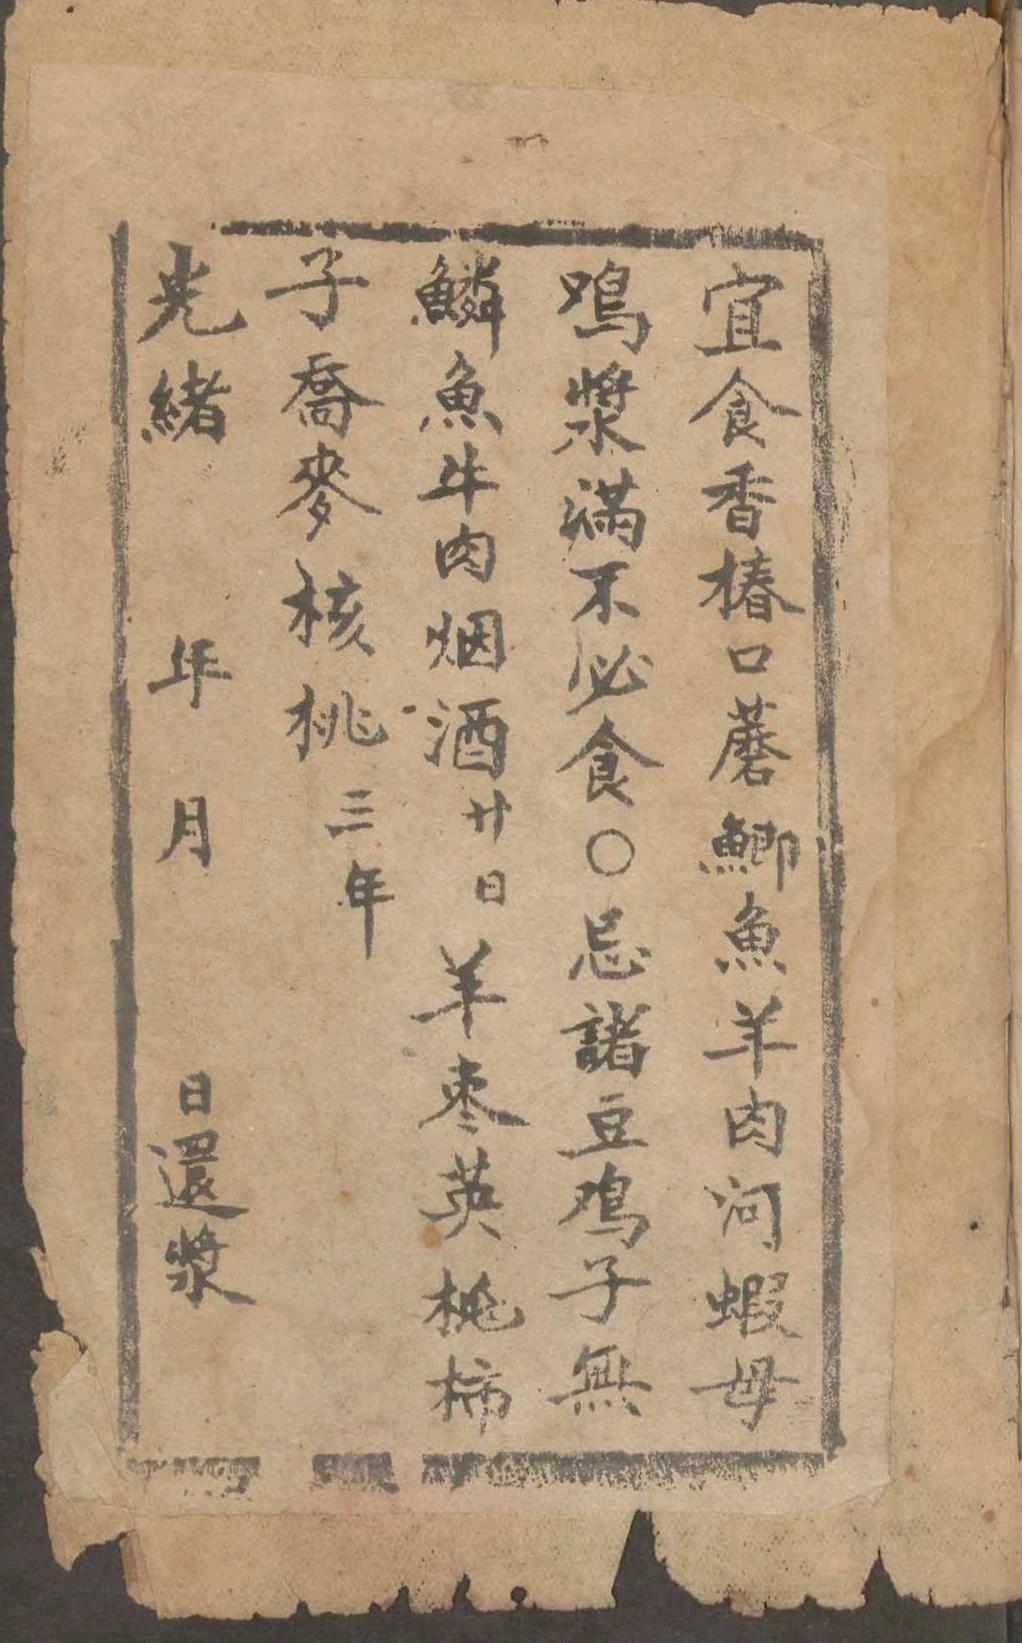 宜食香椿口蘑鯽魚羊肉河蝦母
鳮漿滿不必食〇忌諸豆鳮子無
鱗魚牛肉烟酒廿日羊棗英桃柿
子喬麥核桃三年
光緒 年 月 日還漿